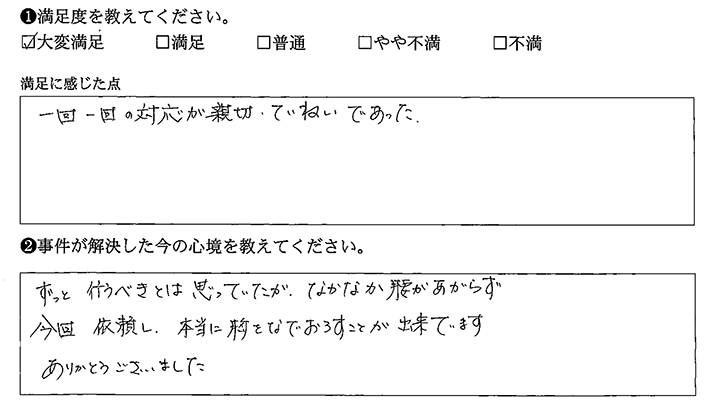 ❶満足度を教えてください。
☑大変満足 □満足 □普通 □やや不満 □不満
満足に感じた点
一回一回の対応が親切・ていねいであった.
❷事件が解決した今の心境を教えてください。
ずっと 行うべきとは思っていたが、なかなか腰があがらず
今回 依頼し、本当に胸をなでおろすことが出来ています
ありがとうございました